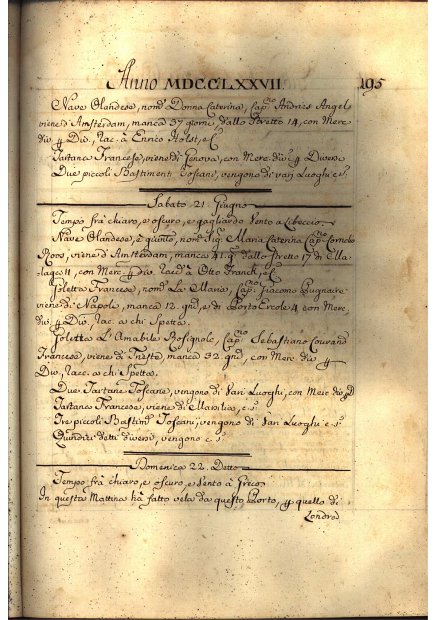 Anno MDCCLXXVII 195
Nave Olandese, nom.a Donna Caterina, Cap.no Andries Angel
viene d'Amsterdam, manca 37 giorni, dallo Stretto 14, con Merc
div. p Div., lac. à Enrico Holst, e C.
Tartana Francese, viene di Genova, con Merc. div. p Diversi
Due piccoli Bastimenti Toscani, vengono di vari Luoghi e s.
Sabato 21. Giugno
Tempo frà chiaro, e oscuro, e gagliardo Vento a Libeccio
Nave Olandese, è giunto, nom. Sig. Maria Caterina Cap.no Cornelio
Roos, viene d'Amsterdam, manca 41. g. dallo Stretto 17 di Ma
laga 11, con Merc. p div. Racc. à Otto Franck, e C.
Poletta Francese, nom. La Maria, Cap. Giacomo
viene di Napole, manca 12 gni, e di Porto Ercole 4 con Merc.
div. p Div., lac. a chi Spetta.
Poletta L'Amabile Rosignole, Cap.no Sebastiano Courand
Francese, viene di Trieste, manca 32 gni, con Merc. div. p
Div., lacc. a chi Spetta.
Due Tartane Toscane, vengono di Vari Luoghi, con Merc. div. p D
Tartana Francese, viene di Marsilia, e s.
Tre piccoli Bastim.ti Toscani, vengono di Vari Luoghi e s.
detti diversi, vengono e s.
Domenica 22. Detto
Tempo frà chiaro, e oscuro, e Vento à Greco
In questa Mattina hà fatto vela da questo Porto, p quello di
Londra